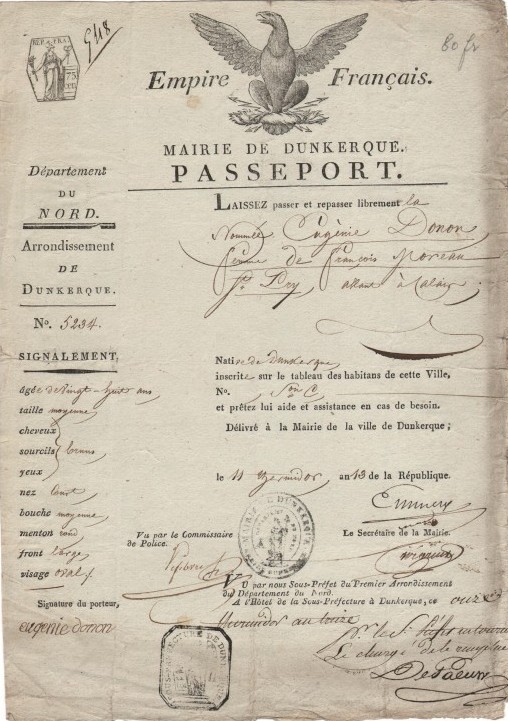 REP. FRA.
75
948
80 fr
Empire Français.
MAIRIE DE DUNKERQUE.
PASSEPORT.
Département
DU
NORD.
Arrondissement
DE
DUNKERQUE.
No. 5234.
SIGNALEMENT,
âgée de vingt-huit ans
taille moyenne
cheveux
sourcils bruns
yeux
nez court
bouche moyenne
menton rond
front large
visage oval
Signature du porteur,
eugenie donon
LAISSEZ passer et repasser librement la
Nommée Eugénie Donon
femme de François Moreau
allant à Calais
Native de Dunkerque
inscrite sur le tableau des habitans de cette Ville.
No. Son C
et prêtez lui aide et assistance en cas de besoin.
Délivré à la Mairie de la ville de Dunkerque;
le 11 Thermidor an 13 de la République.
Emmery
VIS par le Commissaire
de Police.
MAIRIE DE DUNKERQUE
Le Secrétaire de la Mairie.
VU par nous Sous-Préfet du Premier Arrondissement
du Département du Nord.
A l'Hôtel de la Sous-Préfecture à Dunkerque, ce onze
thermidor an treize
SOUS-PREFECTURE DE DUNKERQUE
Le chargé de le